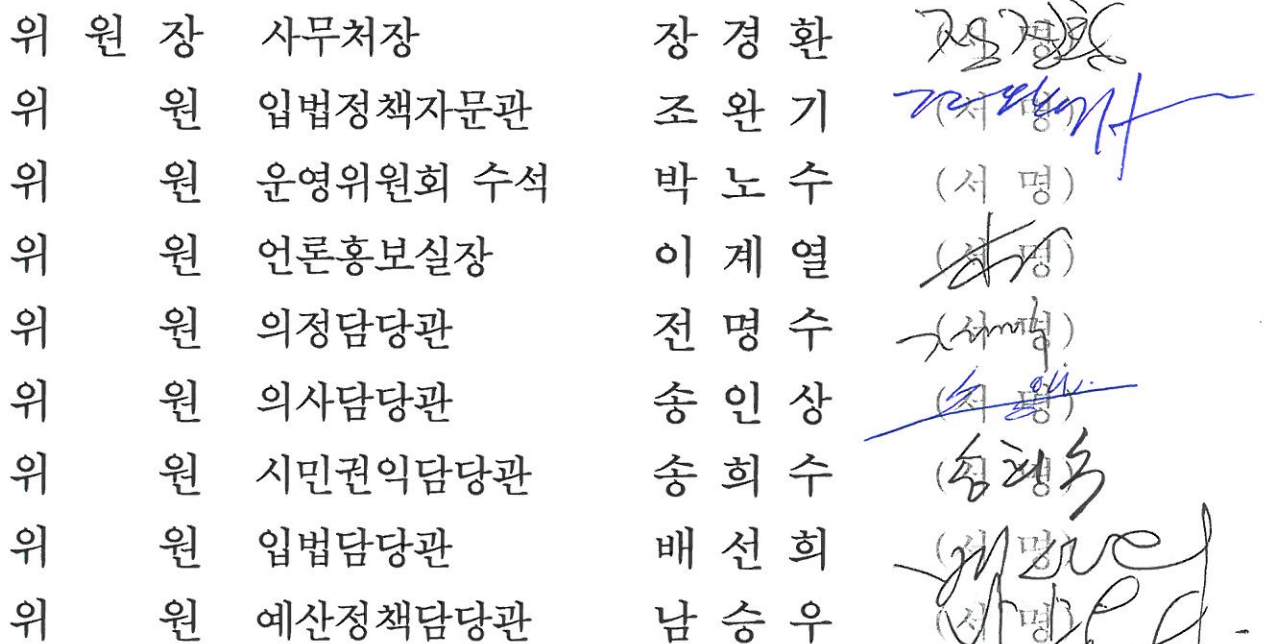 위 원 장 사무처장 장 경 환 (서 명)
위 원 입법정책자문관 조 완 기 (서 명)
위 원 운영위원회 수석 박 노 수 (서 명)
위 원 언론홍보실장 이 계 열 (서 명)
위 원 의정담당관 전 명 수 (서 명)
위 원 의사담당관 송 인 상 (서 명)
위 원 시민권익담당관 송 희 수 (서 명)
위 원 입법담당관 배 선 희 (서 명)
위 원 예산정책담당관 남 승 우 (서 명)